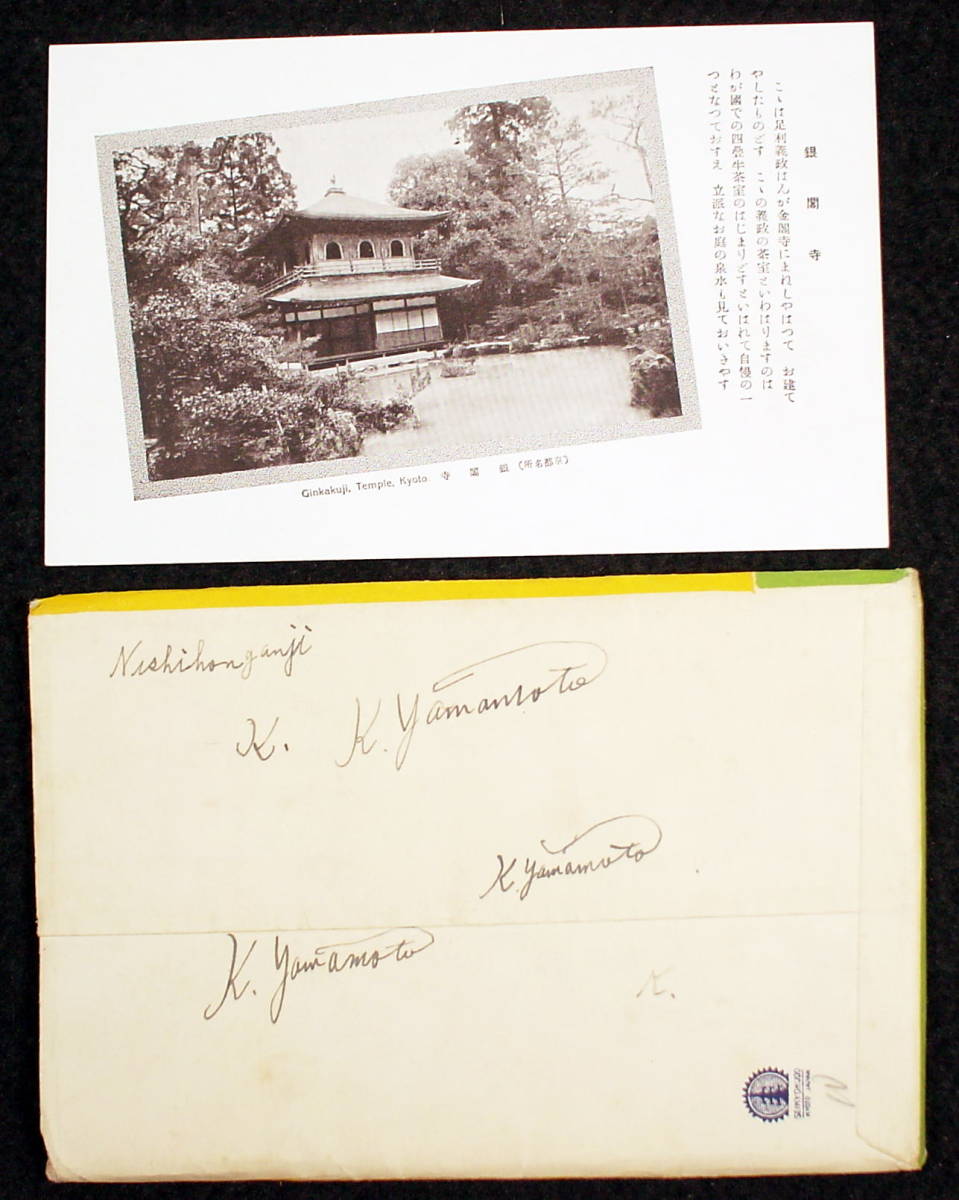 銀閣寺
こゝは足利義政はんが金閣寺にまれしやはつて　お建て
やしたものどす　こゝの義政の茶室といわはりますのは
わが國での四疊半茶室のはじまりどすといはれて自慢の一
つとなつておすえ　立派なお庭の泉水も見ておいきやす
(京都名所) 銀閣寺 Ginkakuji, Temple, Kyoto.
Nishihonganji
K. K. Yamamoto
K. Yamamoto
K. Yamamoto
K.
KYOTO JAPAN